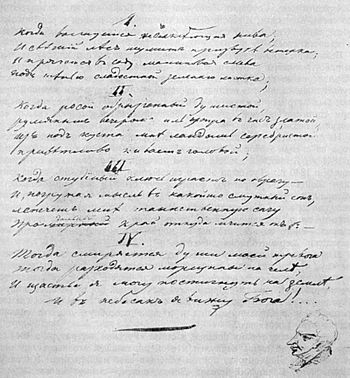 I.
Когда волнуется желтѣющая нива,
И свѣжій лѣсъ шумитъ при звукѣ вѣтерка,
И прячется въ саду малиновая слива
Подъ тѣнью сладостной зеленаго листка;
II
Когда росой обрызганный душистой,
Румянымъ вечеромъ иль утра въ часъ златой
Изъ подъ куста мнѣ ландышъ серебристой
Привѣтливо киваетъ головой;
III
Когда студеный ключъ играетъ по оврагу —
И, погружая мысль въ какой-то смутный сонъ,
Лепечетъ мнѣ таинственную сагу
Про край откуда мчится онъ: —
IV.
Тогда смиряется души моей тревога
Тогда расходятся морщины на челѣ,
И щастье я могу постигнуть на землѣ,
И въ небесахъ я вижу Бога!...